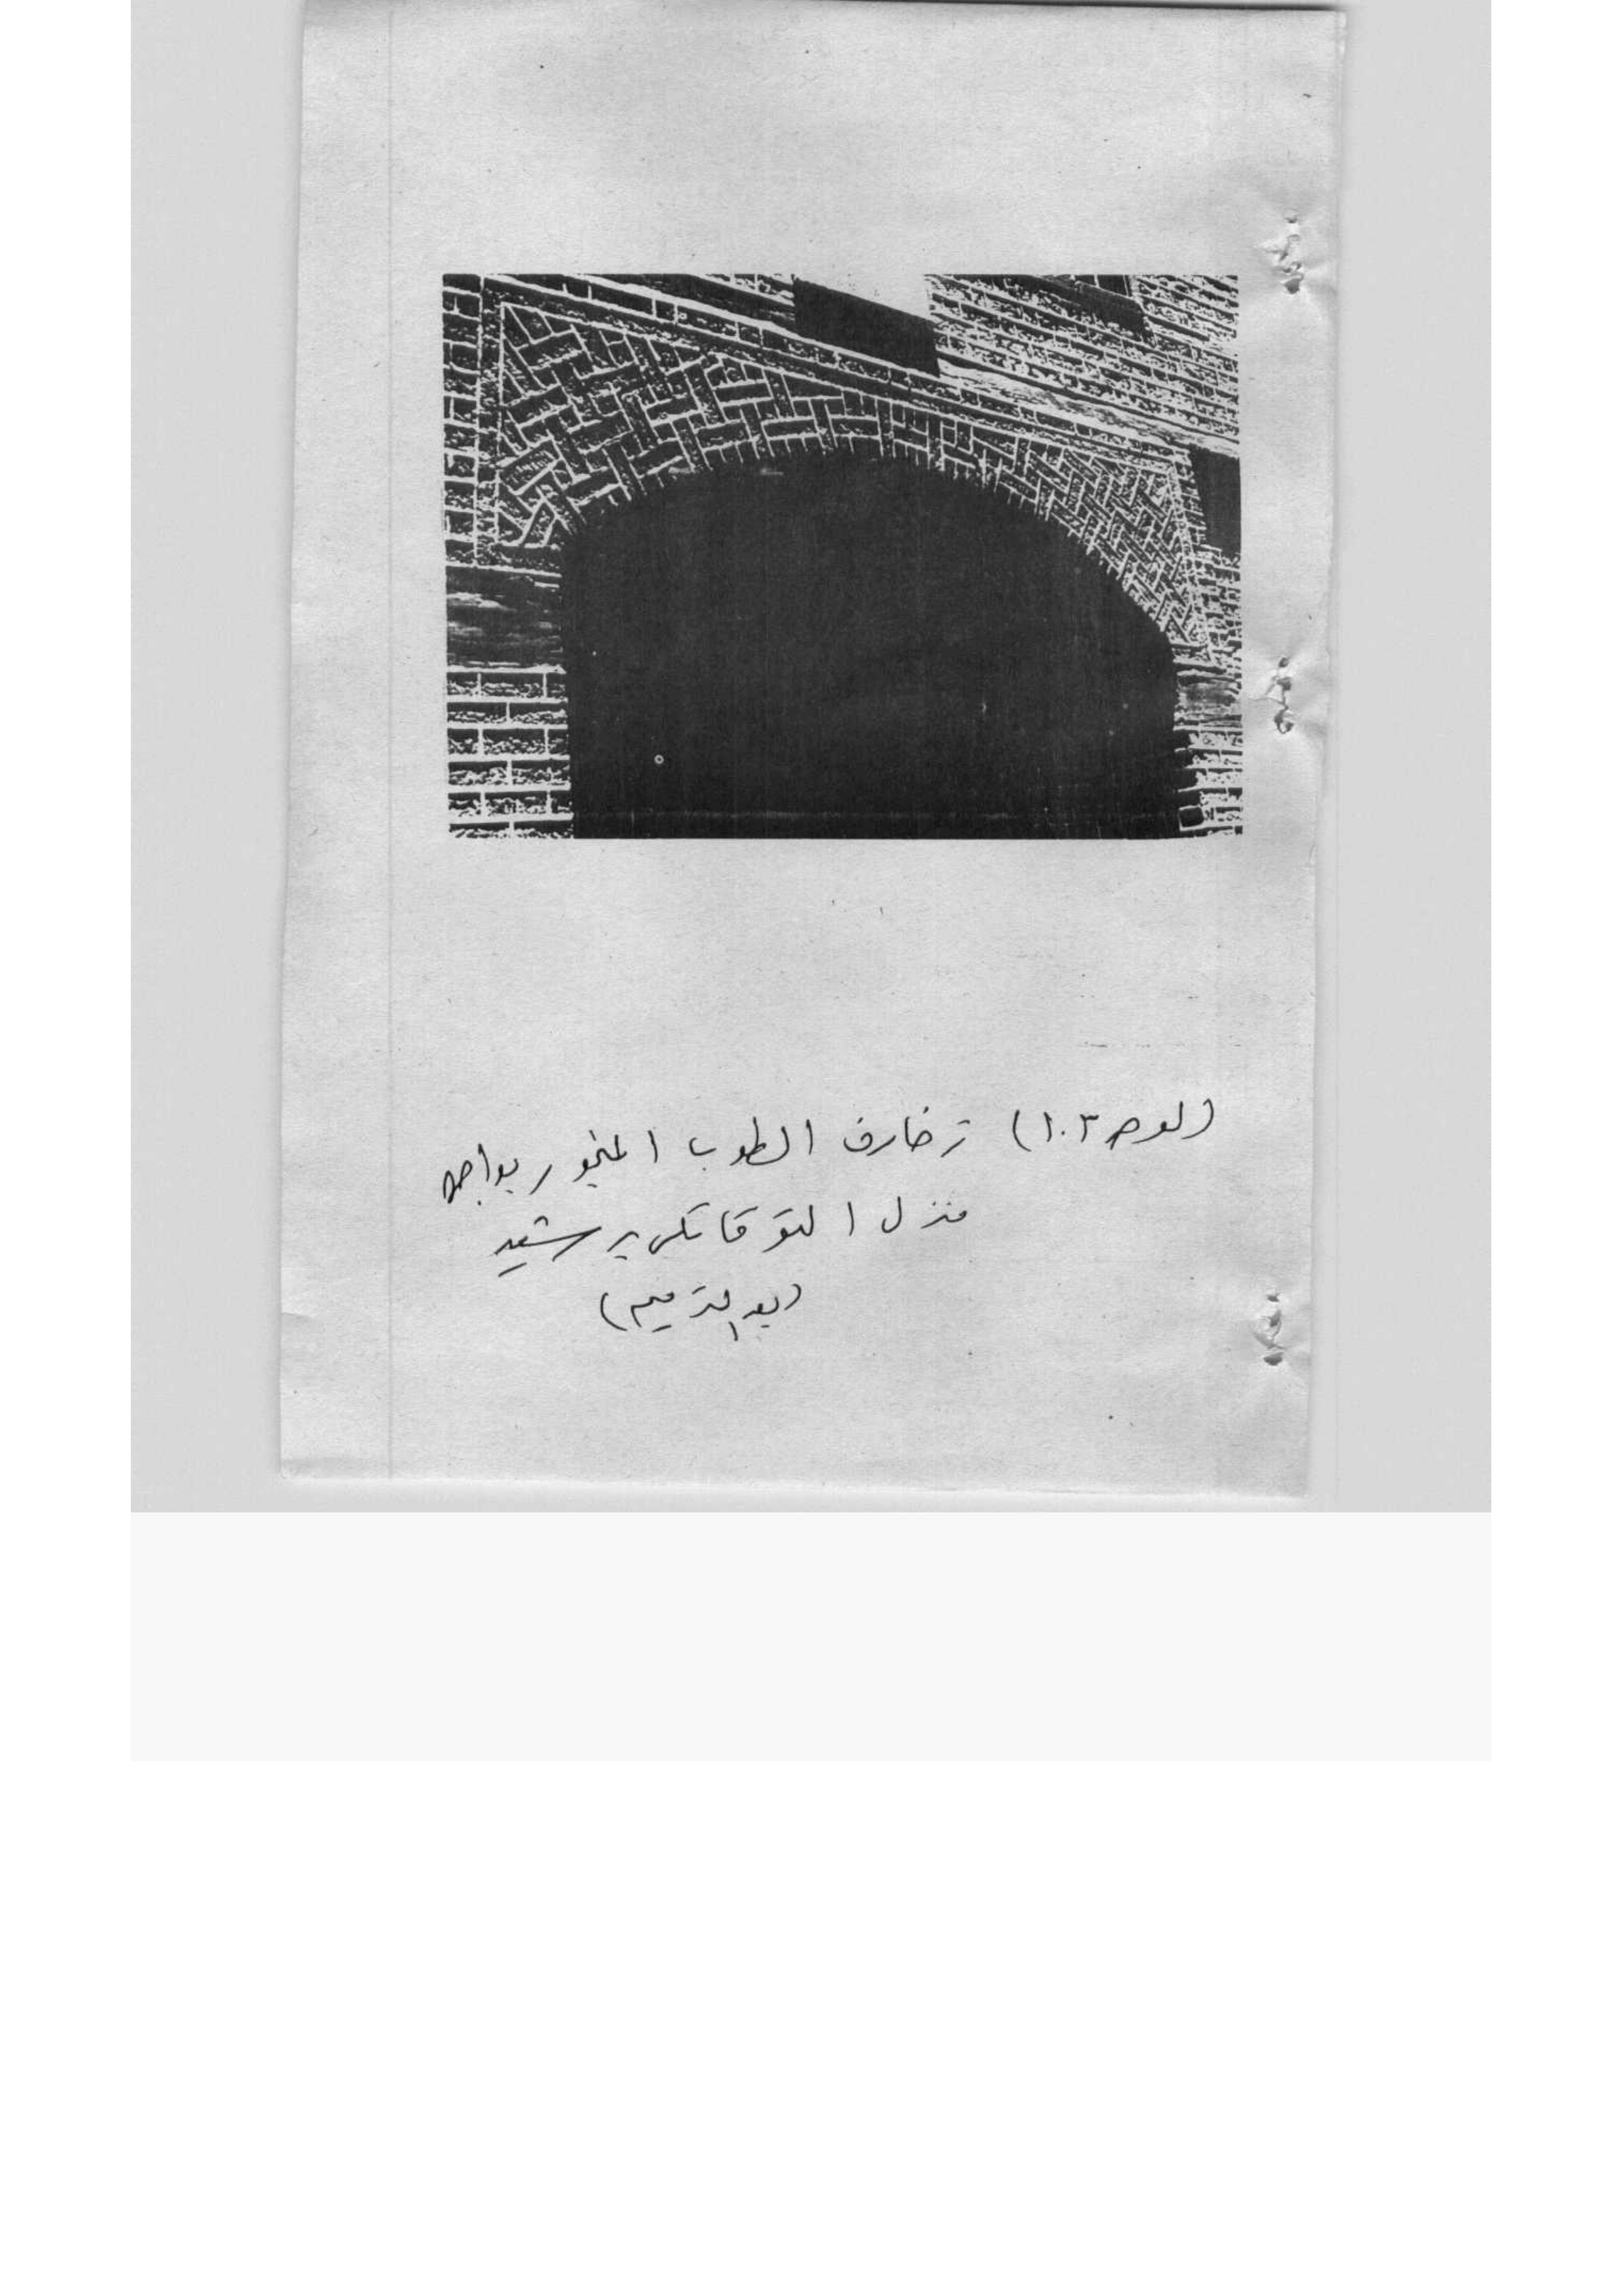 (لوحة ١٠٣) زخارف الطوب المنجور بواجهة
منزل التوقاتلى برشيد
(بعد الترميم)